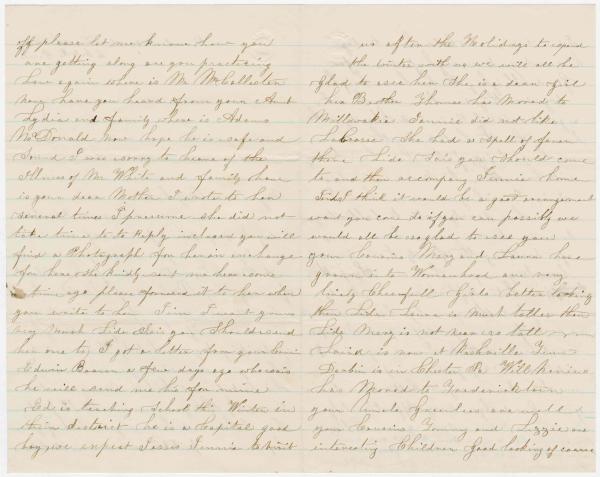 off please let me know how you
are getting along are you practicing
Law again where is Mr McCallister
now have you heard from your Aunt
Lydia and family where is Adams
McDonald now hope he is safe and
Sound I was sorry to heare of the
Illness of Mr White and family how
is your dear Mother I wrote to her
several times I presume she did not
take time to to Reply inclosed you will
find a Photograph for her in exchange
for hers she kindly sent me hers some
time ago please forward it to her when
you write to her Jim I want yours
very much Lide Sais you Should send
her one to I got a letter from your Cousin
Edwin a few days ago wherein
he will send me his for mine
Ed is teaching School this Winter in
their district he is a Capital good
boy we expect Jennie to visit
us after the Holidays to spend
the winter with us we will all be
Glad to see her She is a dear Girl
her Brother Thomas has Moved to
Millwakie Jennie did not like
LaCrosse She had a spell of fever
there Lide Sais you Should come
to and then accompany Jennie home
I think it would be a good arrangement
want you can do if you can possibly we
would all be so glad to see you
your Cousins Mary and Laura have
grown in to Womanhood are very
lively Chearfull Girls better looking
than Lide Laura is much taller than
Lide Mary is not near so tall
Laird is now at Nashville Tenn
is in Chester Pa Will
has Moved to Fredericktown
your Uncle are well &
your Cousins Young and Lizzie are
interesting Children Good looking of coarse